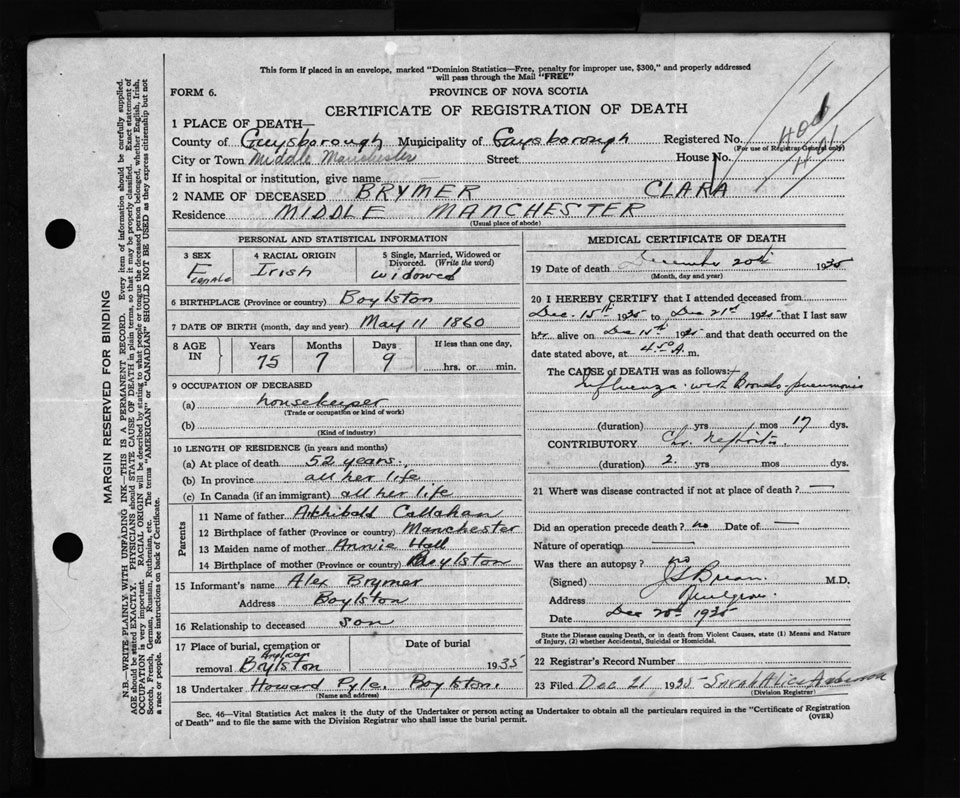 This form if placed in an envelope, marked "Dominion Statistics—Free, penalty for improper use, $300," and properly addressed
will pass through the Mail "FREE"
FORM 6.
PROVINCE OF NOVA SCOTIA
CERTIFICATE OF REGISTRATION OF DEATH
1 PLACE OF DEATH—
County of Guysborough Municipality of Guysborough Registered No.
(For use of Registrar General only)
City or Town Middle Manchester Street House No.
If in hospital or institution, give name
2 NAME OF DECEASED BRYMER CLARA
Residence MIDDLE MANCHESTER
(Usual place of abode)
PERSONAL AND STATISTICAL INFORMATION
3 SEX Female
4 RACIAL ORIGIN Irish
5 Single, Married, Widowed or Divorced. (Write the word) widowed
6 BIRTHPLACE (Province or country) Boylston
7 DATE OF BIRTH (month, day and year) May 11 1860
8 AGE IN Years 75 Months 7 Days 9 If less than one day, hrs. or min.
9 OCCUPATION OF DECEASED
(a) housekeeper
(Trade or occupation or kind of work)
(b)
(Kind of industry)
10 LENGTH OF RESIDENCE (in years and months)
(a) At place of death 52 years.
(b) In province all her life
(c) In Canada (if an immigrant) all her life
Parents
11 Name of father Archibald Callahan
12 Birthplace of father (Province or country) Manchester
13 Maiden name of mother Annie Hall
14 Birthplace of mother (Province or country) Boylston
15 Informant's name Alex Brymer
Address Boylston
16 Relationship to deceased son
17 Place of burial, cremation or removal Anglican Boylston
Date of burial 1935
18 Undertaker Howard Pyle. Boylston.
(Name and address)
MEDICAL CERTIFICATE OF DEATH
19 Date of death December 20th 1935
(Month, day and year)
20 I HEREBY CERTIFY that I attended deceased from
Dec. 15th 1935 to Dec 21st 1935 that I last saw
her alive on Dec 15th 1935 and that death occurred on the
date stated above, at 4.50 A. m.
The CAUSE OF DEATH was as follows:—
Influenza with Broncho-pneumonia
(duration) yrs mos 17 dys.
CONTRIBUTORY Chr. Nephritis
(duration) 2. yrs mos dys.
21 Where was disease contracted if not at place of death? —
Did an operation precede death? no Date of —
Nature of operation —
Was there an autopsy? no
(Signed) M.D.
Address Mulgrave
Date Dec 20th 1935
State the Disease causing Death, or in death from Violent Causes, state (1) Means and Nature
of Injury, (2) whether Accidental, Suicidal or Homicidal.
22 Registrar's Record Number
23 Filed Dec 21 1935 Sarah Alice
(Division Registrar)
Sec. 46—Vital Statistics Act makes it the duty of the Undertaker or person acting as Undertaker to obtain all the particulars required in the "Certificate of Registration
of Death" and to file the same with the Division Registrar who shall issue the burial permit.
(OVER)
MARGIN RESERVED FOR BINDING
N.B.—WRITE PLAINLY WITH UNFADING INK—THIS IS A PERMANENT RECORD. Every item of information should be carefully supplied.
AGE should be stated EXACTLY. PHYSICIANS should STATE CAUSE OF DEATH in plain terms, so that it may be properly classified. Exact statement of
OCCUPATION is very important. RACIAL ORIGIN will be described by stating to what people or tongue the deceased person belonged, whether English, Irish,
Scotch, French, German, Russian, Ruthenian, etc. The terms "AMERICAN" or "CANADIAN" SHOULD NOT BE USED as they express citizenship but not
a race or people. See instructions on back of Certificate.